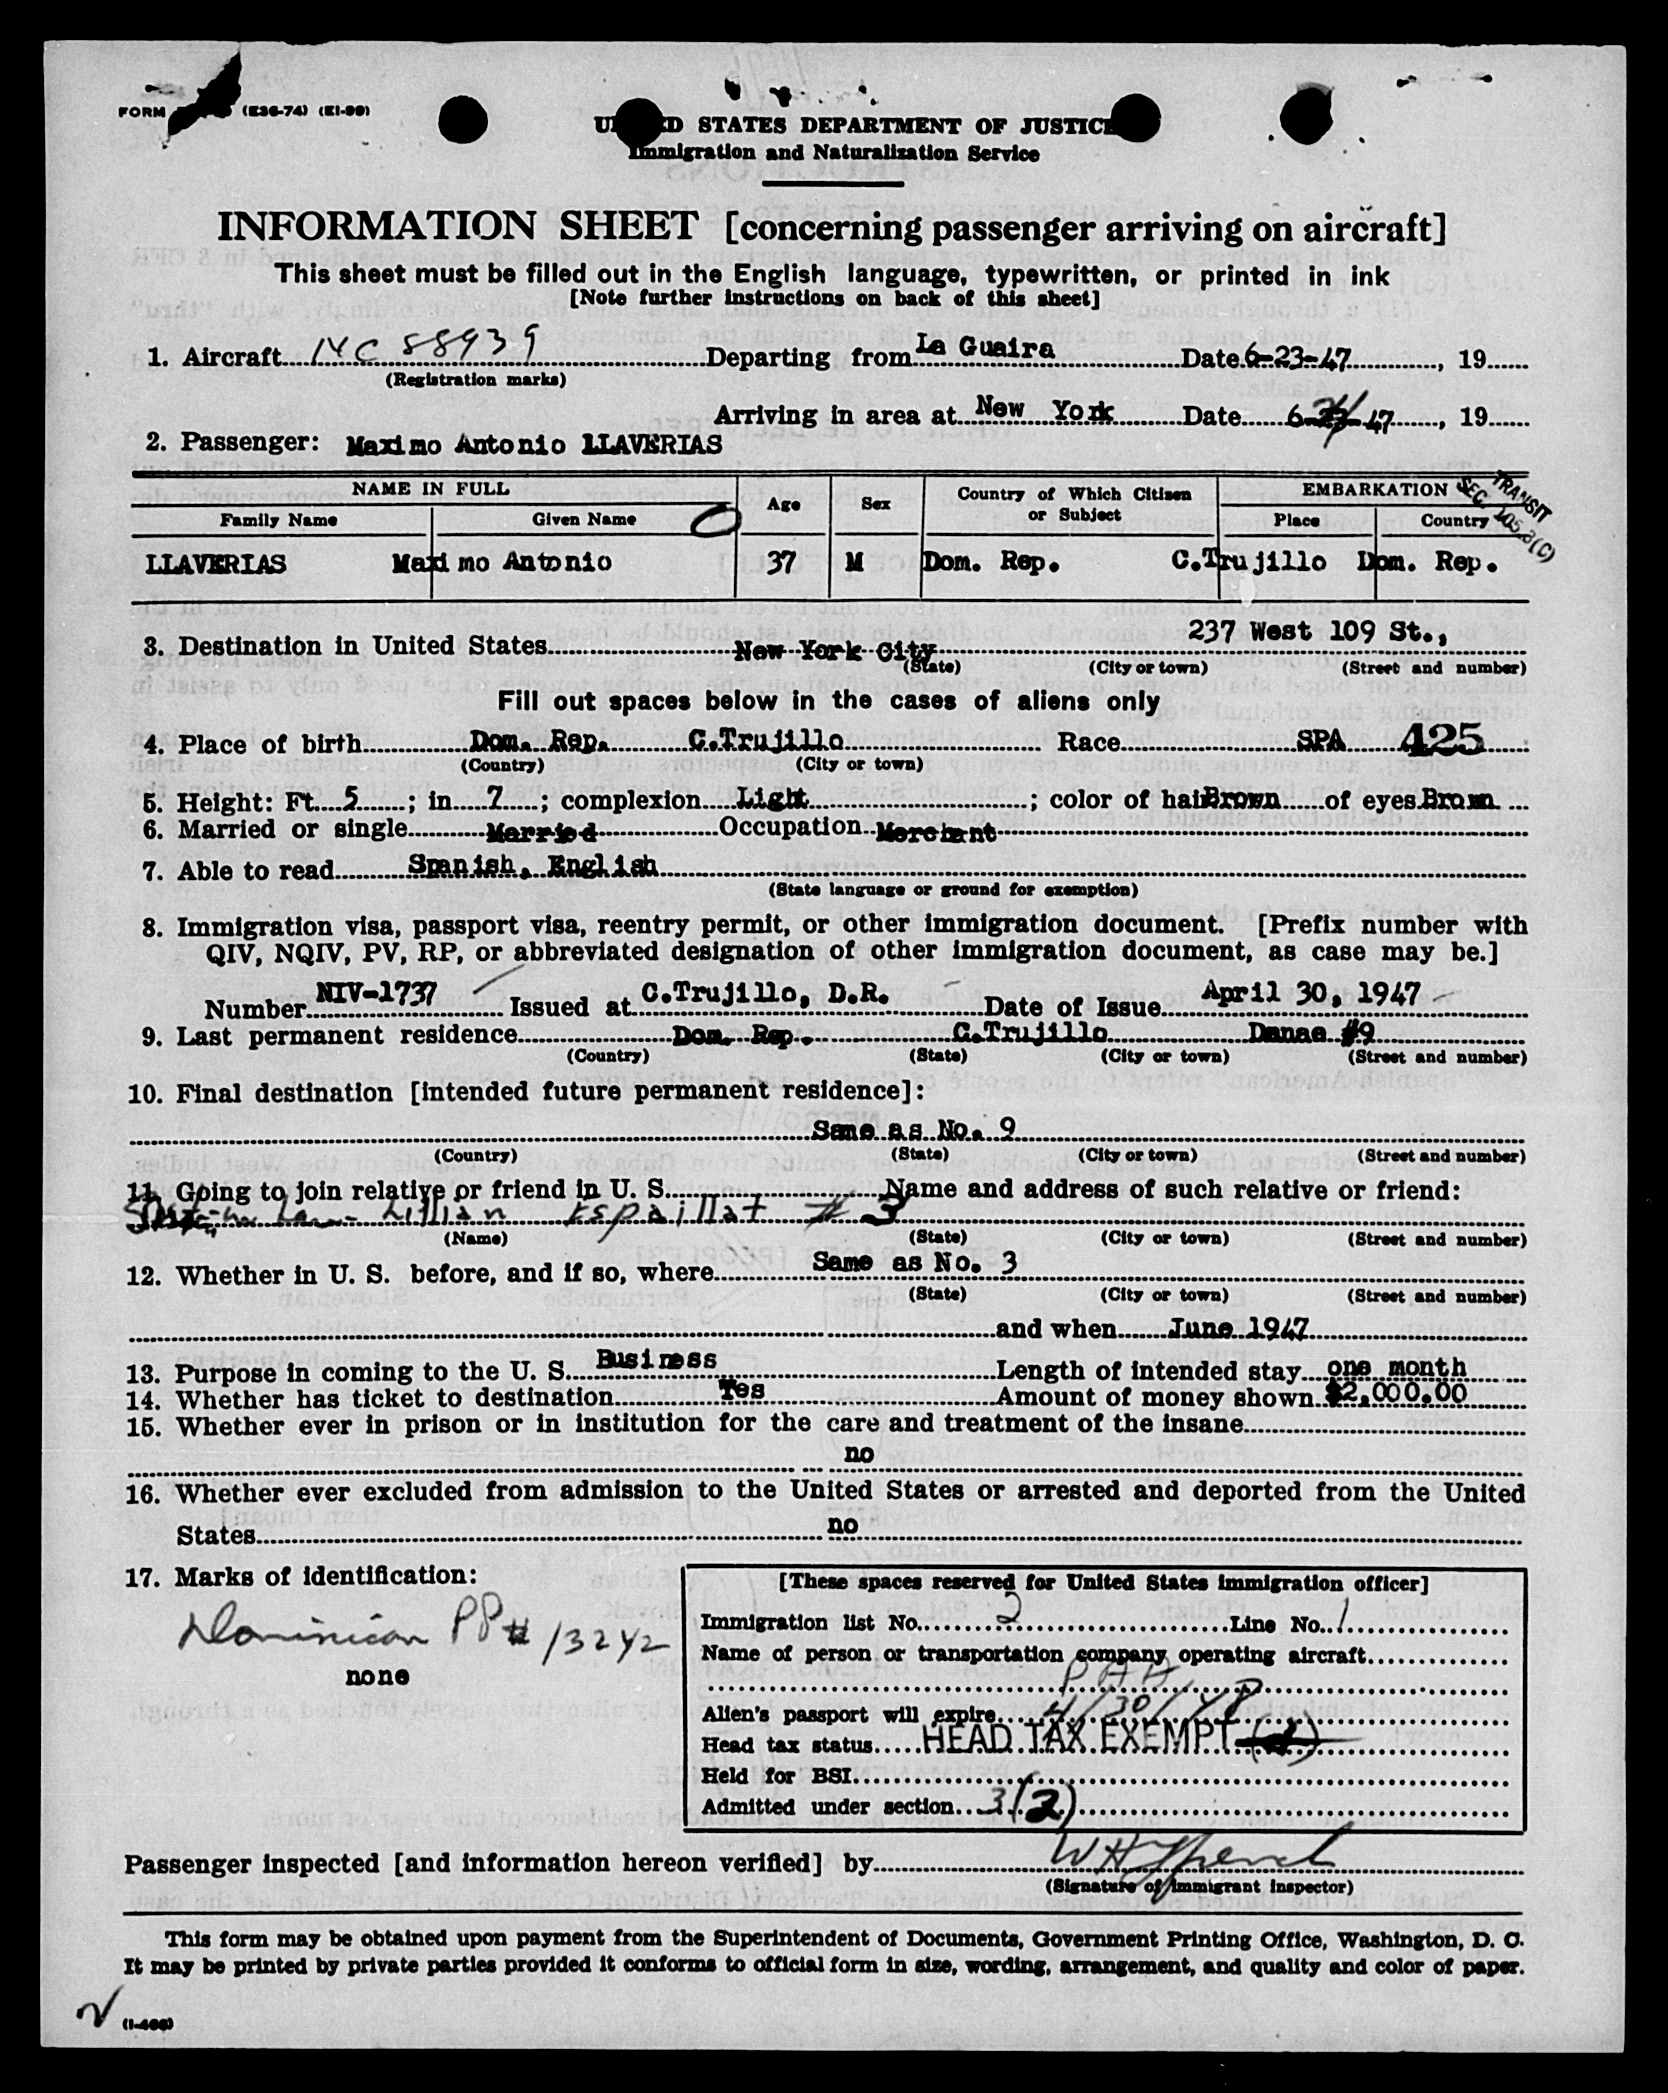 FORM (E36-74) (EI-99)
STATES DEPARTMENT OF JUSTICE
Immigration and Naturalization Service
INFORMATION SHEET [concerning passenger arriving on aircraft]
This sheet must be filled out in the English language, typewritten, or printed in ink
[Note further instructions on back of this sheet]
1. Aircraft NC 88939 Departing from La Guaira Date 6-23-47, 19
(Registration marks)
Arriving in area at New York Date 6-24-47, 19
2. Passenger: Maximo Antonio LLAVERIAS
NAME IN FULL Age Sex Country of Which Citizen or Subject EMBARKATION TRANSIT SEC. 105.3(C)
Family Name Given Name Place Country
LLAVERIAS Maximo Antonio 37 M Dom. Rep. C.Trujillo Dom. Rep.
3. Destination in United States New York City 237 West 109 St.,
(State) (City or town) (Street and number)
Fill out spaces below in the cases of aliens only
4. Place of birth Dom. Rep. C.Trujillo Race SPA 425
(Country) (City or town)
5. Height: Ft. 5; in. 7; complexion Light; color of hair Brown of eyes Brown
6. Married or single Married Occupation Merchant
7. Able to read Spanish, English
(State language or ground for exemption)
8. Immigration visa, passport visa, reentry permit, or other immigration document. [Prefix number with
QIV, NQIV, PV, RP, or abbreviated designation of other immigration document, as case may be.]
Number NIV-1737 Issued at C.Trujillo, D.R. Date of Issue April 30, 1947
9. Last permanent residence Dom. Rep. C.Trujillo Danae #9
(Country) (State) (City or town) (Street and number)
10. Final destination [intended future permanent residence]:
Same as No. 9
(Country) (State) (City or town) (Street and number)
11. Going to join relative or friend in U. S. Name and address of such relative or friend:
Sister-in Law- Lillian Espaillat # 3
(Name) (State) (City or town) (Street and number)
12. Whether in U. S. before, and if so, where Same as No. 3
(State) (City or town) (Street and number)
and when June 1947
13. Purpose in coming to the U. S. Business Length of intended stay one month
14. Whether has ticket to destination Yes Amount of money shown $2,000.00
15. Whether ever in prison or in institution for the care and treatment of the insane
no
16. Whether ever excluded from admission to the United States or arrested and deported from the United
States no
17. Marks of identification:
Dominican PP# 13242
none
[These spaces reserved for United States immigration officer]
Immigration list No. 2 Line No. 1
Name of person or transportation company operating aircraft
PAA
Alien's passport will expire 4/30/48
Head tax status HEAD TAX EXEMPT
Held for BSI
Admitted under section 3(2)
Passenger inspected [and information hereon verified] by
(Signature of immigrant inspector)
This form may be obtained upon payment from the Superintendent of Documents, Government Printing Office, Washington, D. C.
It may be printed by private parties provided it conforms to official form in size, wording, arrangement, and quality and color of paper.
(I-466)